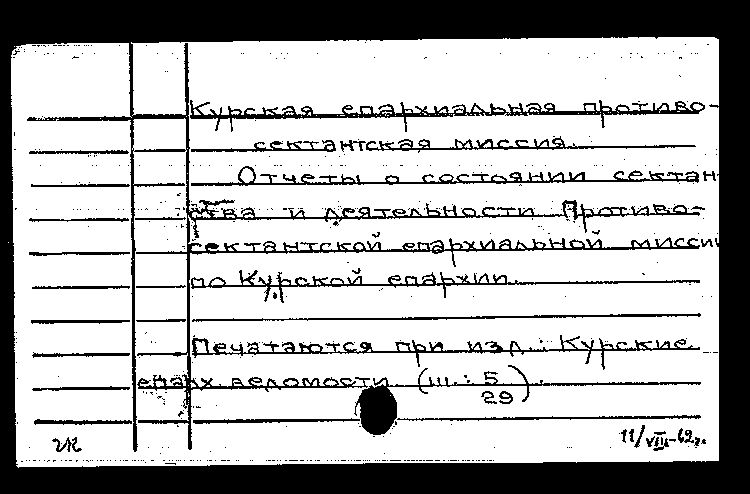 Курская епархиальная противо-
сектантская миссия.
Отчеты о состоянии сектан-
ства и деятельности Противо-
сектантской епархиальной миссии
по Курской епархии.
Печатаются при изд.: Курские
епарх. ведомости (ш.: 5/29).
11/VIII-62г.